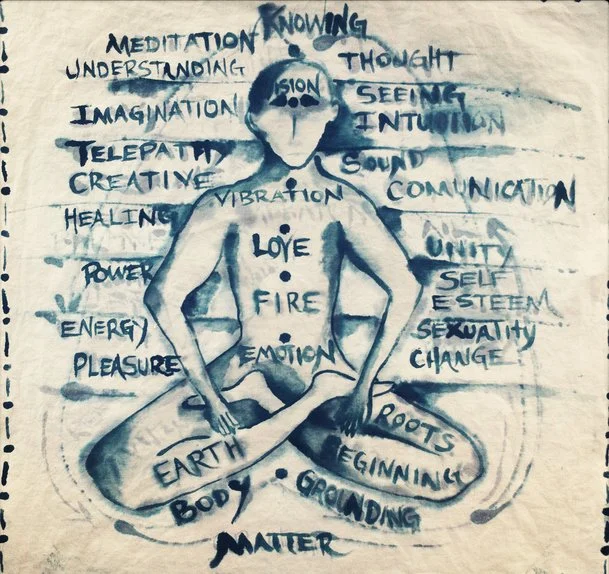 KNOWING
MEDITATION THOUGHT
UNDERSTANDING
VISION SEEING
IMAGINATION INTUITION
TELEPATHY SOUND
CREATIVE VIBRATION COMUNICATION
HEALING LOVE UNITY
POWER FIRE SELF
ESTEEM
ENERGY SEXUALITY
PLEASURE EMOTION CHANGE
EARTH ROOTS
BEGINNING
BODY GROUNDING
MATTER